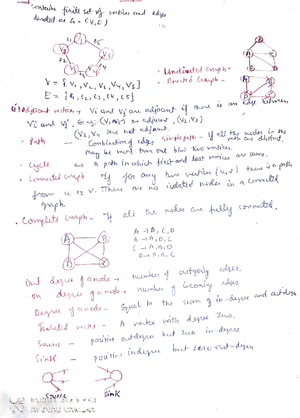 contains finite set of vertices and edges
denoted as G = (V, E)
V = { V₁, V₂, V₃, V₄, V₅ }
E = { e₁, e₂, e₃, e₄, e₅ }
Undirected Graph -
Directed Graph -
Adjacent vertices → Vi and Vj are adjacent if there is an edge between
Vi and Vj. E.g: (V₁, V₂) are adjacent, (V₂, V₃)
are not adjacent.
Path - Combination of edges. Simple path - If all the nodes in the
may be more than one b/w two vertices. path are distinct.
Cycle - a path in which first and last vertices are same.
Connected graph - If for any two vertices (u, v) there is a path
from u to v. There are no isolated nodes in a connected
graph.
Complete Graph - If all the nodes are fully connected.
A B
D C
A → B, C, D
B → A, D, C
C → A, B, D
D → A, B, C
Out degree of a node → number of outgoing edges.
In degree of a node - number of incoming edges.
Degree of a node - Equal to the sum of in-degree and outdegree
Isolated vertex - A vertex with degree zero.
Source - positive outdegree but zero in-degree
Sink - positive indegree but zero out-degree.
Source Sink